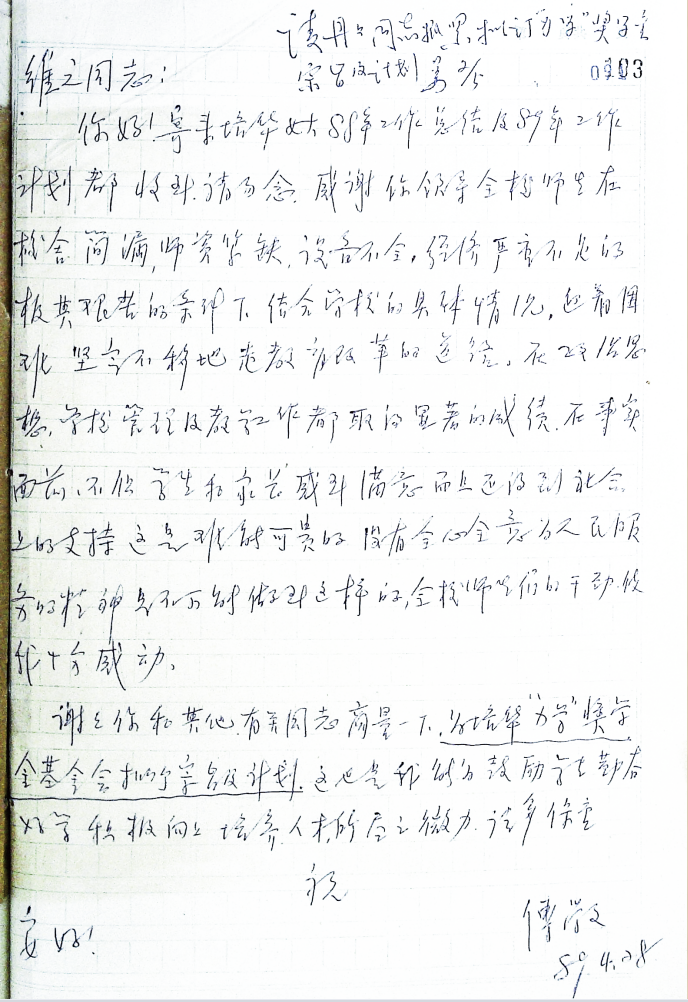 请丹丹同志抓紧拟订"为学"奖学金
宗旨及计划 姜 2/5
0103
维之同志:
你好!寄来培华女大88年工作总结及89年工作
计划都收到,请勿念。感谢你领导全校师生在
校舍简漏,师资紧缺,设备不全,经济严重不足的
极其艰苦的条件下,结合学校的具体情况,迎着困
难坚定不移地走教育改革的道路。在政治思
想,学校管理及教学工作都取得显著的成绩。在事实
面前,不但学生和家长感到满意而且还得到社会
上的支持这是难能可贵的 没有全心全意为人民服
务的精神是不可能做到这样的,全校师生们的干劲使
我十分感动。
谢谢你和其他有关同志商量一下,为培华"为学"奖学
金基金会拟个宗旨及计划。这也是我能为鼓励学生勤奋
好学积极向上培养人材,所尽之微力。请多保重
祝
安好!
傅学文
89.4.28